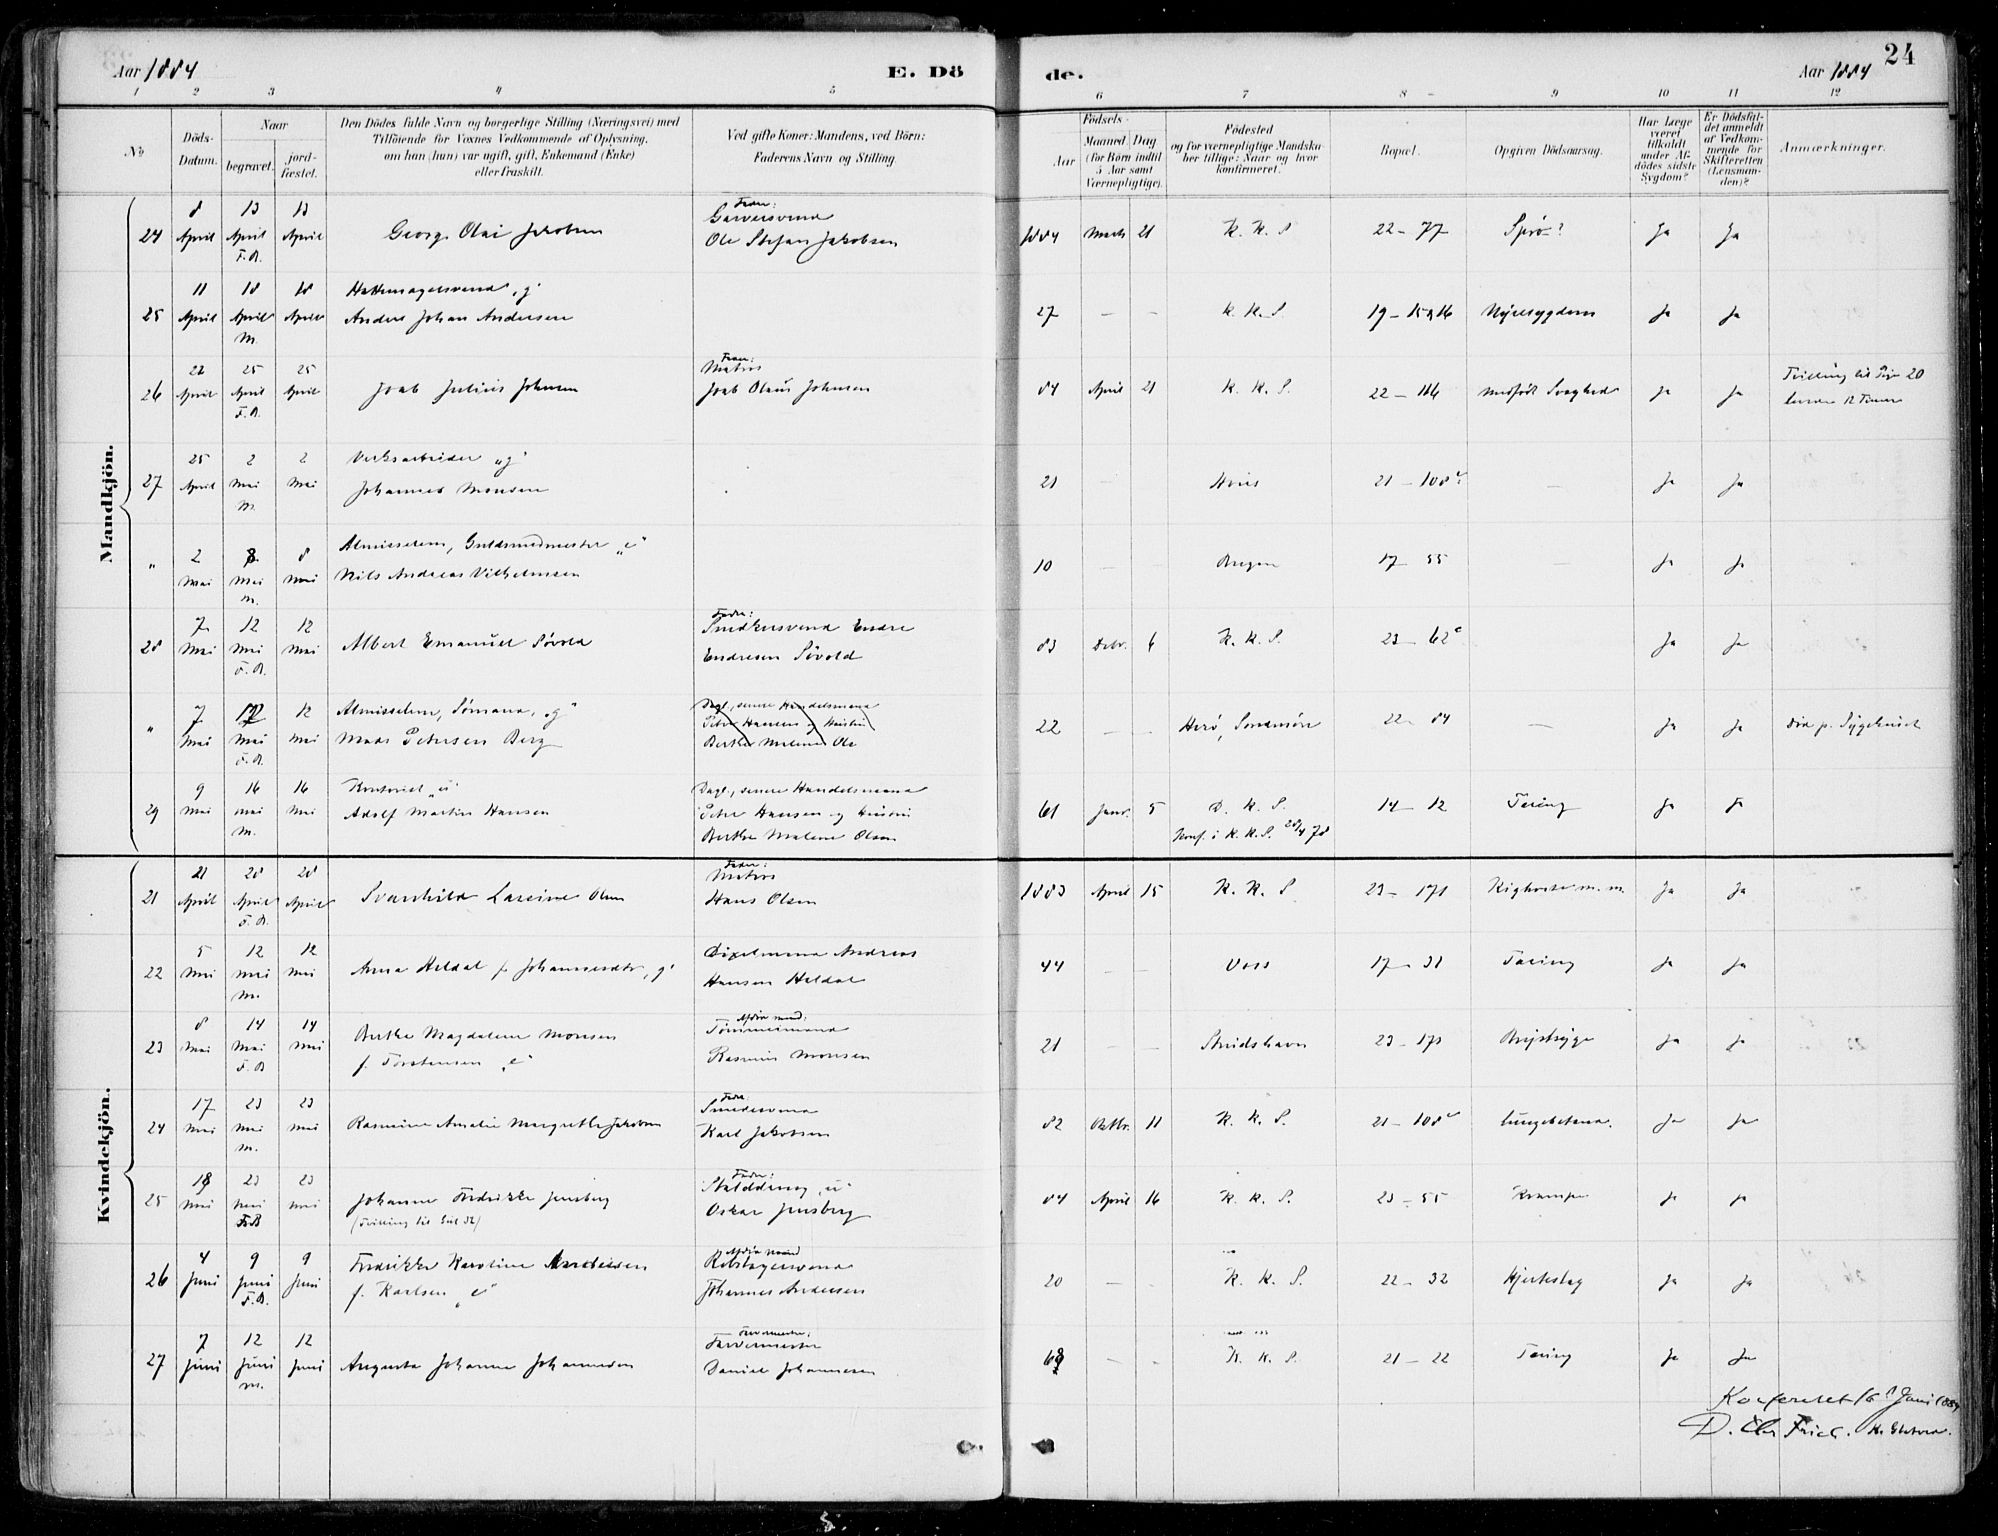 Aar 1884
E. Dö
de.
24
Aar 1884
1 2 3 4 5 6 7 8 9 10 11 12
No
Döds-
Datum.
Naar
begravet.
jord-
fæstet.
Den Dödes fulde Navn og borgerlige Stilling (Næringsvei) med
Tilföiende for Voxnes Vedkommende af Oplysning,
om han (hun) var ugift, gift, Enkemand (Enke)
eller fraskilt.
Ved gifte Koner: Mandens, ved Börn:
Faderens Navn og Stilling.
Födsels-
Aar
Maaned Dag
(for Börn indtil
5 Aar samt
Værnepligtige).
Födested
og for værnepligtige Mandska-
ber tillige: Naar og hvor
konfirmeret.
Bopæl.
Opgiven Dödsaarsag.
Har Læge
været
tilkaldt
under Af-
dödes sidste
Sygdom?
Er Dödsfal-
det anmeldt
af Vedkom-
mende for
Skifteretten
(Lensman-
den)?
Anmærkninger.
Mandkjön.
8 13 13 Fader:
Garversvend
24 April April April Georg Olai Jakobsen Ole Stefan Jakobsen 1884 Marts 21 K. K. S 22 – 77 Ja Ja
F.B.
11 18 18 Hattemagersvend „g"
25 April April April Anders Johan Andersen 27 – – K. K. S 19 – Nyresygdom Ja Ja
M.
22 25 25 Fader: Matros
26 April April April Joab Julius Johnsen Joab Olaus Johnsen 84 April 21 K. K. S. 22 – 116 medfödt Svaghed Ja Ja Tvilling til Pige 20
F.B. levede 12 Timer
25 2 2 Verksarbeider „g"
27 April Mai Mai Johannes Monsen 21 – 21 – 108 – Ja Ja
M.
2 8 8 Almisselem, Guldsmedmester „e"
„ Mai Mai Mai Nils Andreas Vilhelmsen 10 – – Bergen 17 – 55 – Ja Ja
M.
7 12 12 Fader: Snedkersvend Endre
28 Mai Mai Mai Albert Emanuel Sövold Endresen Sövold 83 Debr. 6 K. K. S. 23 – 62 Ja Ja
F.B.
7 12 12 Almisselem, Sömand, „g" Dagl., senere Handelsmand
„ Mai Mai Mai Mads Petersen Berg Peter Hansen og Hustru 22 – – Herö, Söndmöre 22 – 84 – Ja Ja död p. Sygehuset
F.B. Berthe Malene Ols
9 16 16 Kontorist „u" Dagl., senere Handelsmand
29 Mai Mai Mai Adolf Martin Hansen Peter Hansen og Hustru 61 Janr. 5 D. K. S. 14 – 12 Tæring Ja Ja
M. Berthe Malene Olsen Konf. i K. K. S. 28/4 78
Kvindekjön.
21 28 28 Fader: Matros
21 April April April Svanhild Lassine Olsen Hans Olsen 1883 April 15 K. K. S 23 – 171 Kighoste m. m. Ja Ja
F.B.
5 12 12 Dixelmand Andreas
22 Mai Mai Mai Anna Heldal f. Johannesdtr, „g" Hansen Heldal 44 – – Voss 17 – 31 Tæring Ja Ja
M.
8 14 14 Berthe Magdalene Monsen Afdöd mand: Tömmermand
23 Mai Mai Mai f. Torstensen „e" Rasmus Monsen 21 – – 23 – 171 Brystsyge Ja Ja
F.B
17 23 23 Fader: Smedesvend
24 Mai Mai Mai Rasmine Amalie Margrethe Jakobsen Karl Jakobsen 82 Oktbr. 11 K. K. S. 21 – 108 Lungebetænd. Ja Ja
M.
18 23 23 Fader:
25 Mai Mai Mai Johanne Fredrikke Jensberg Oskar Jensberg 84 April 16 K. K. S. 23 – 55 Krampe Ja Ja
F.B (Tvilling til Gut 32)
4 9 9 Fredrikke Karoline Andersen Afdöd mand Rebslagersvend
26 Juni Juni Juni f. Karlsen „e" Johannes Andersen 20 – – K. K. S. 22 – 32 Hjerteslag Ja Ja
F.B.
7 12 12 Farvermester
27 Juni Juni Juni Augusta Johanne Johannesen Daniel Johannesen 68 – – K. K. S. 21 – 22 Tæring Ja Ja
M.
Konfereret 16 Juni 1884